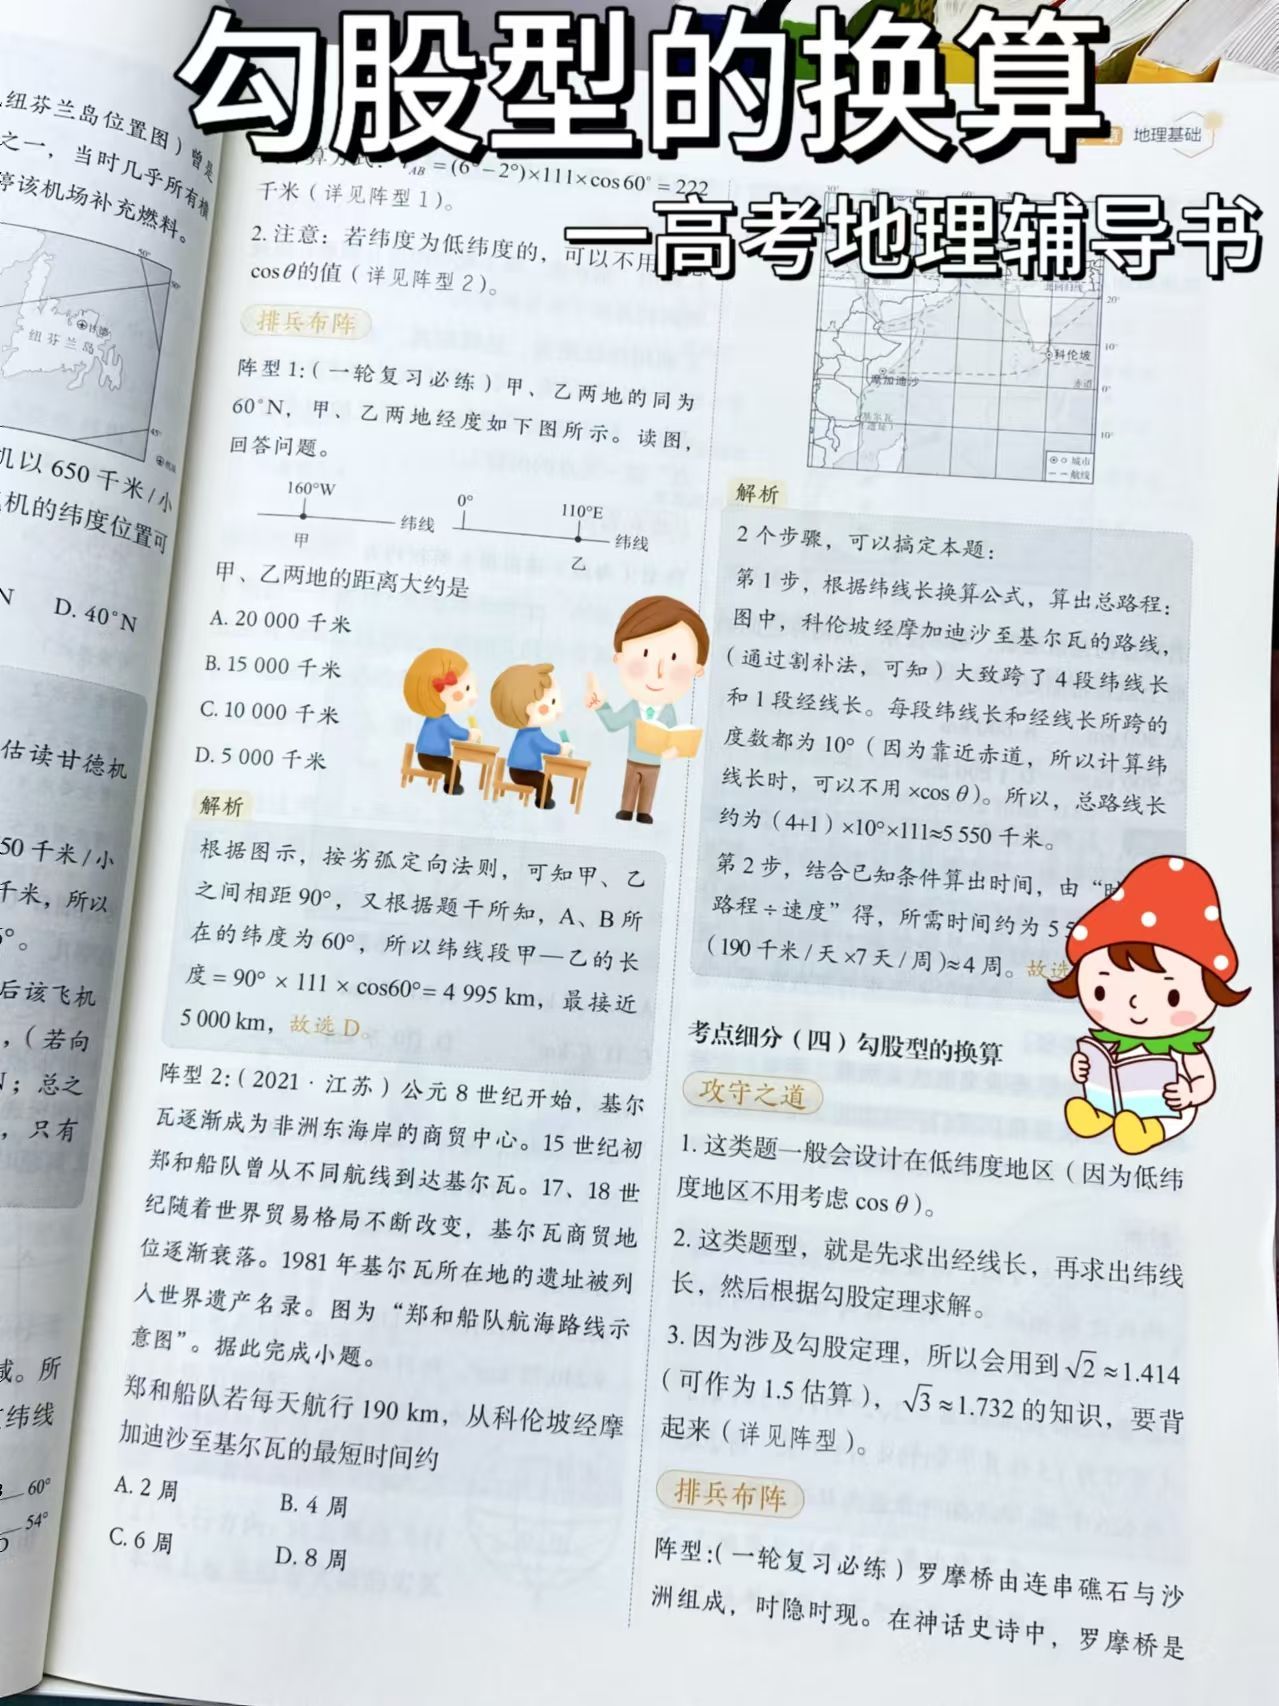 勾股型的换算
—高考地理辅导书
地理基础
纽芬兰岛位置图）曾是
之一，当时几乎所有横
停该机场补充燃料。
50°
45°
纽芬兰岛
机以 650 千米/小
机的纬度位置可
N D. 40°N
估读甘德机
50 千米/小
千米，所以
5°。
后该飞机
，（若向
N；总之
，只有
减。所
纬线
60°
54°
=(6°－2°)×111×cos60°＝222
千米（详见阵型 1）。
2. 注意：若纬度为低纬度的，可以不用
cosθ的值（详见阵型 2）。
排兵布阵
阵型 1：（一轮复习必练）甲、乙两地的同为
60°N，甲、乙两地经度如下图所示。读图，
回答问题。
160°W 0° 110°E
纬线 纬线
甲 乙
甲、乙两地的距离大约是
A. 20 000 千米
B. 15 000 千米
C. 10 000 千米
D. 5 000 千米
解析
根据图示，按劣弧定向法则，可知甲、乙
之间相距 90°，又根据题干所知，A、B 所
在的纬度为 60°，所以纬线段甲—乙的长
度＝90° × 111 × cos60°＝4 995 km，最接近
5 000 km，故选 D。
阵型 2：（2021 · 江苏）公元 8 世纪开始，基尔
瓦逐渐成为非洲东海岸的商贸中心。15 世纪初
郑和船队曾从不同航线到达基尔瓦。17、18 世
纪随着世界贸易格局不断改变，基尔瓦商贸地
位逐渐衰落。1981 年基尔瓦所在地的遗址被列
入世界遗产名录。图为“郑和船队航海路线示
意图”。据此完成小题。
郑和船队若每天航行 190 km，从科伦坡经摩
加迪沙至基尔瓦的最短时间约
A. 2 周 B. 4 周
C. 6 周 D. 8 周
北回归线
20°
10°
科伦坡
赤道
0°
摩加迪沙
基尔瓦
（遗址）
10°
城市
航线
解析
2 个步骤，可以搞定本题：
第 1 步，根据纬线长换算公式，算出总路程：
图中，科伦坡经摩加迪沙至基尔瓦的路线，
（通过割补法，可知）大致跨了 4 段纬线长
和 1 段经线长。每段纬线长和经线长所跨的
度数都为 10°（因为靠近赤道，所以计算纬
线长时，可以不用 ×cos θ）。所以，总路线长
约为（4+1）×10°×111≈5 550 千米。
第 2 步，结合已知条件算出时间，由“时
路程÷速度”得，所需时间约为 5 5
（190 千米/天 ×7 天/周）≈4 周。故选
考点细分（四）勾股型的换算
攻守之道
1. 这类题一般会设计在低纬度地区（因为低纬
度地区不用考虑 cos θ）。
2. 这类题型，就是先求出经线长，再求出纬线
长，然后根据勾股定理求解。
3. 因为涉及勾股定理，所以会用到 √2 ≈1.414
（可作为 1.5 估算），√3 ≈1.732 的知识，要背
起来（详见阵型）。
排兵布阵
阵型：（一轮复习必练）罗摩桥由连串礁石与沙
洲组成，时隐时现。在神话史诗中，罗摩桥是